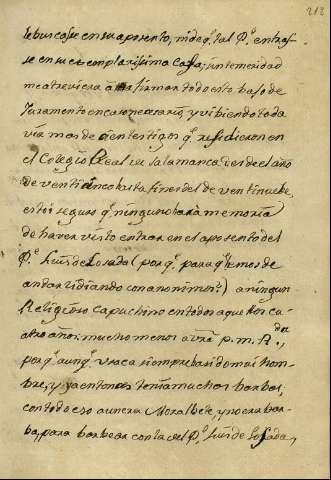 213
le buscasse en su aposento, ni de q.e tal P.e entras-
se en su exemplarissima Casa; sin temeridad
me atreviera a afirmar todo esto baxo de
Juramento en caso necesario, y viviendo toda
via mas de cien testigos q.e residieron en
el Collegio Real de Salamanca desde el año
de veinti cinco hasta fines del de ventinueve,
estoi seguro q.e ninguno hará memoria
de haver visto entrar en el aposento del
P.e Luis de Losada (porq.e para q.e hemos de
andar lidiando con anonimos?) a ningun
Religioso Capuchino en todos aquellos cua-
tro años: mucho menor a vra P. M. R.da
porq.e aunq.e vraca siempre ha sido mui hom-
bre, y ya entonces tenia muchas barbas,
con todo eso aun era Moralbete, y no era bar-
ba, para barbear con la del P.e Luis de Losada,